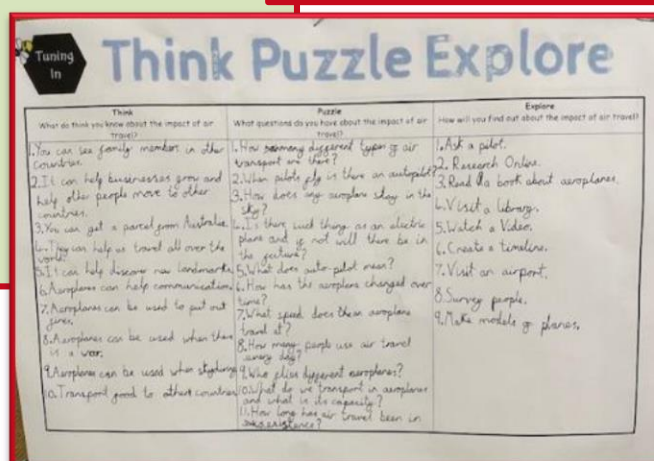 Tuning
In
Think Puzzle Explore
Think
What do think you know about the impact of air
travel?
1. You can see family members in other
countries.
2. It can help businesses grow and
help other people move to other
countries.
3. You can get a parcel from Australia
4. They can help us travel all over the
world.
5. It can help discover new landmarks
6. Aeroplanes can help communication
7. Aeroplanes can be used to put out
fires.
8. Aeroplanes can be used when there
is a war.
9. Aeroplanes can be used when skydiving
10. Transport good to others countries
Puzzle
What questions do you have about the impact of air
travel?
1. How many different types of air
transport are there?
2. When pilots fly is there an autopilot?
3. How does any aeroplane stay in the
sky?
4. Is there such thing as an electric
plane and if not will there be in
the future?
5. What does auto-pilot mean?
6. How has the aeroplane changed over
time?
7. What speed does the aeroplane
travel at?
8. How many people use air travel
every day?
9. Who flies different aeroplanes?
10. What do we transport in aeroplanes
and what is its capacity?
11. How long has air travel been in
existence?
Explore
How will you find out about the impact of air travel?
1. Ask a pilot.
2. Research Online.
3. Read a book about aeroplanes.
4. Visit a library.
5. Watch a Video.
6. Create a timeline.
7. Visit an airport.
8. Survey people.
9. Make models of planes.